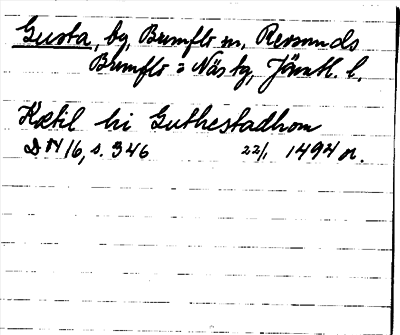 Gusta, by, Brunflo sn, Revsunds
Brunflo o Näs tg, Jämtl. l.
Kætil hi Guthestadhom
DN 16, s. 346 22/1 1494 or.